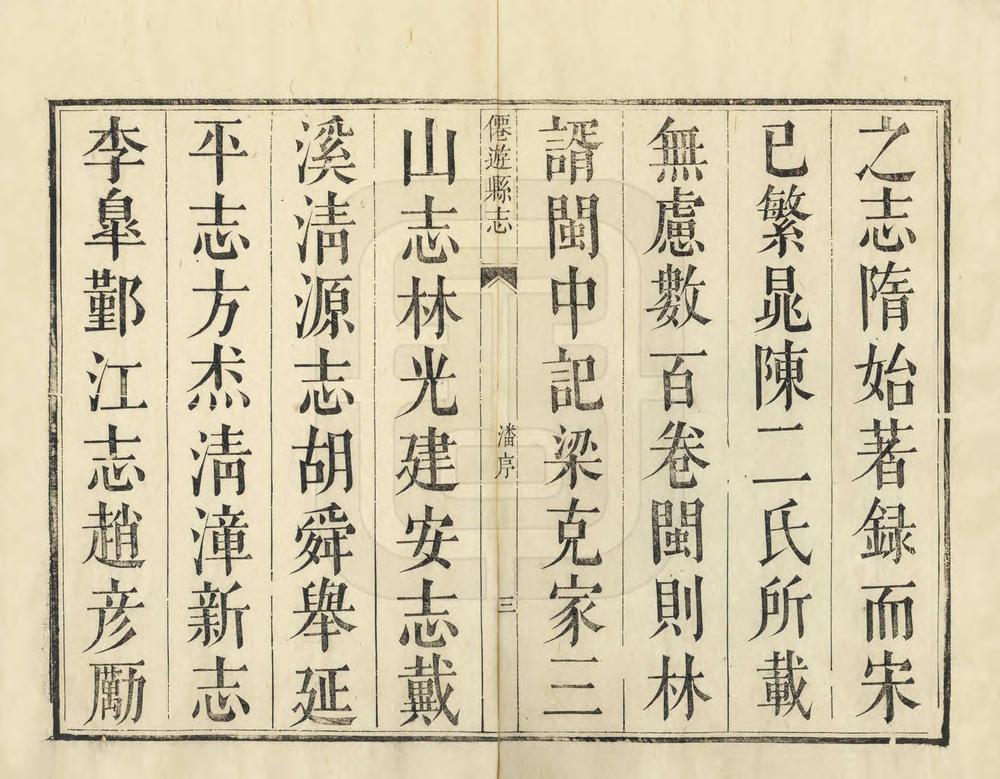 之志隋始著録而宋
已繁晁陳二氏所載
無慮數百卷閩則林
諝閩中記梁克家三
僊遊縣志
潘序
三
山志林光建安志戴
溪清源志胡舜舉延
平志方杰清漳新志
李皐鄞江志趙彦勵